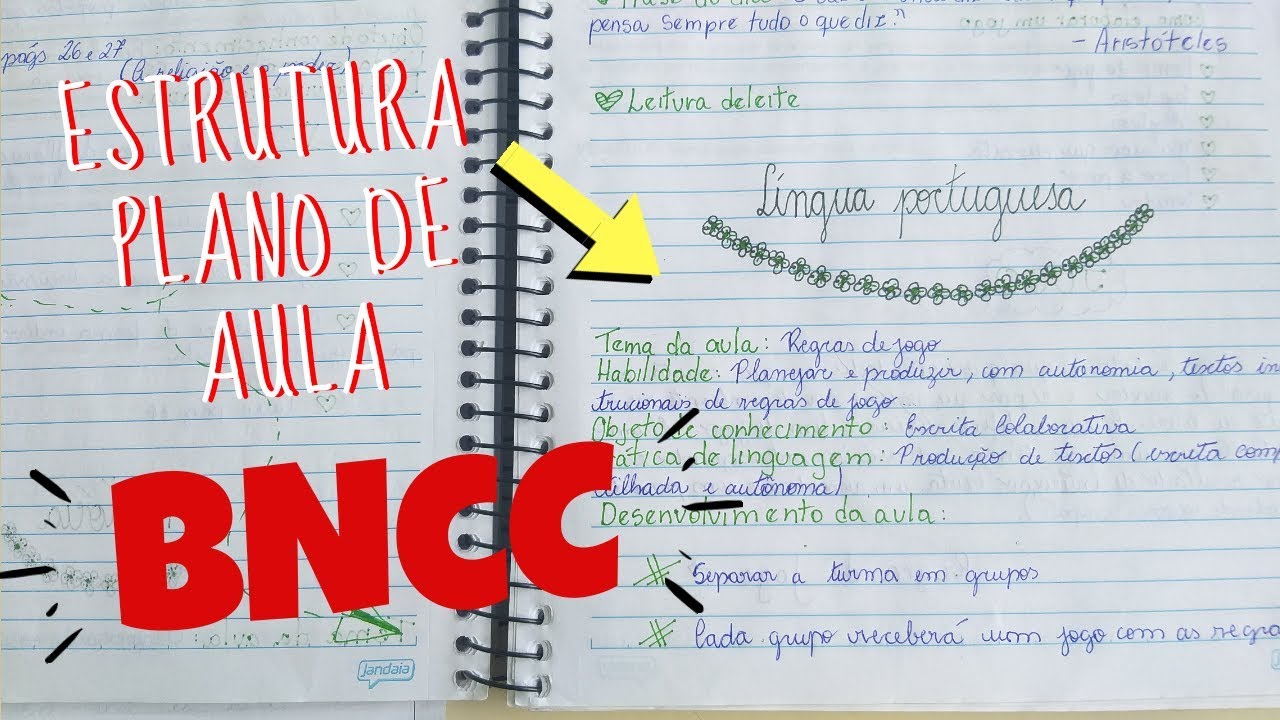 págs 26 e 27
ESTRUTURA
PLANO DE
AULA
BNCC
Jandaia
pensa sempre tudo o que diz."
- Aristóteles
Leitura deleite
Língua portuguesa
Tema da aula: Regras de jogo
Habilidade: Planejar e produzir, com autonomia, textos ins
trucionais de regras de jogo...
Objeto de conhecimento: Escrita colaborativa
ática de linguagem: Produção de textos (escrita comp
tilhada e autônoma)
Desenvolvimento da aula:
# Separar a turma em grupos
# Cada grupo receberá um jogo com as regra
Jandaia